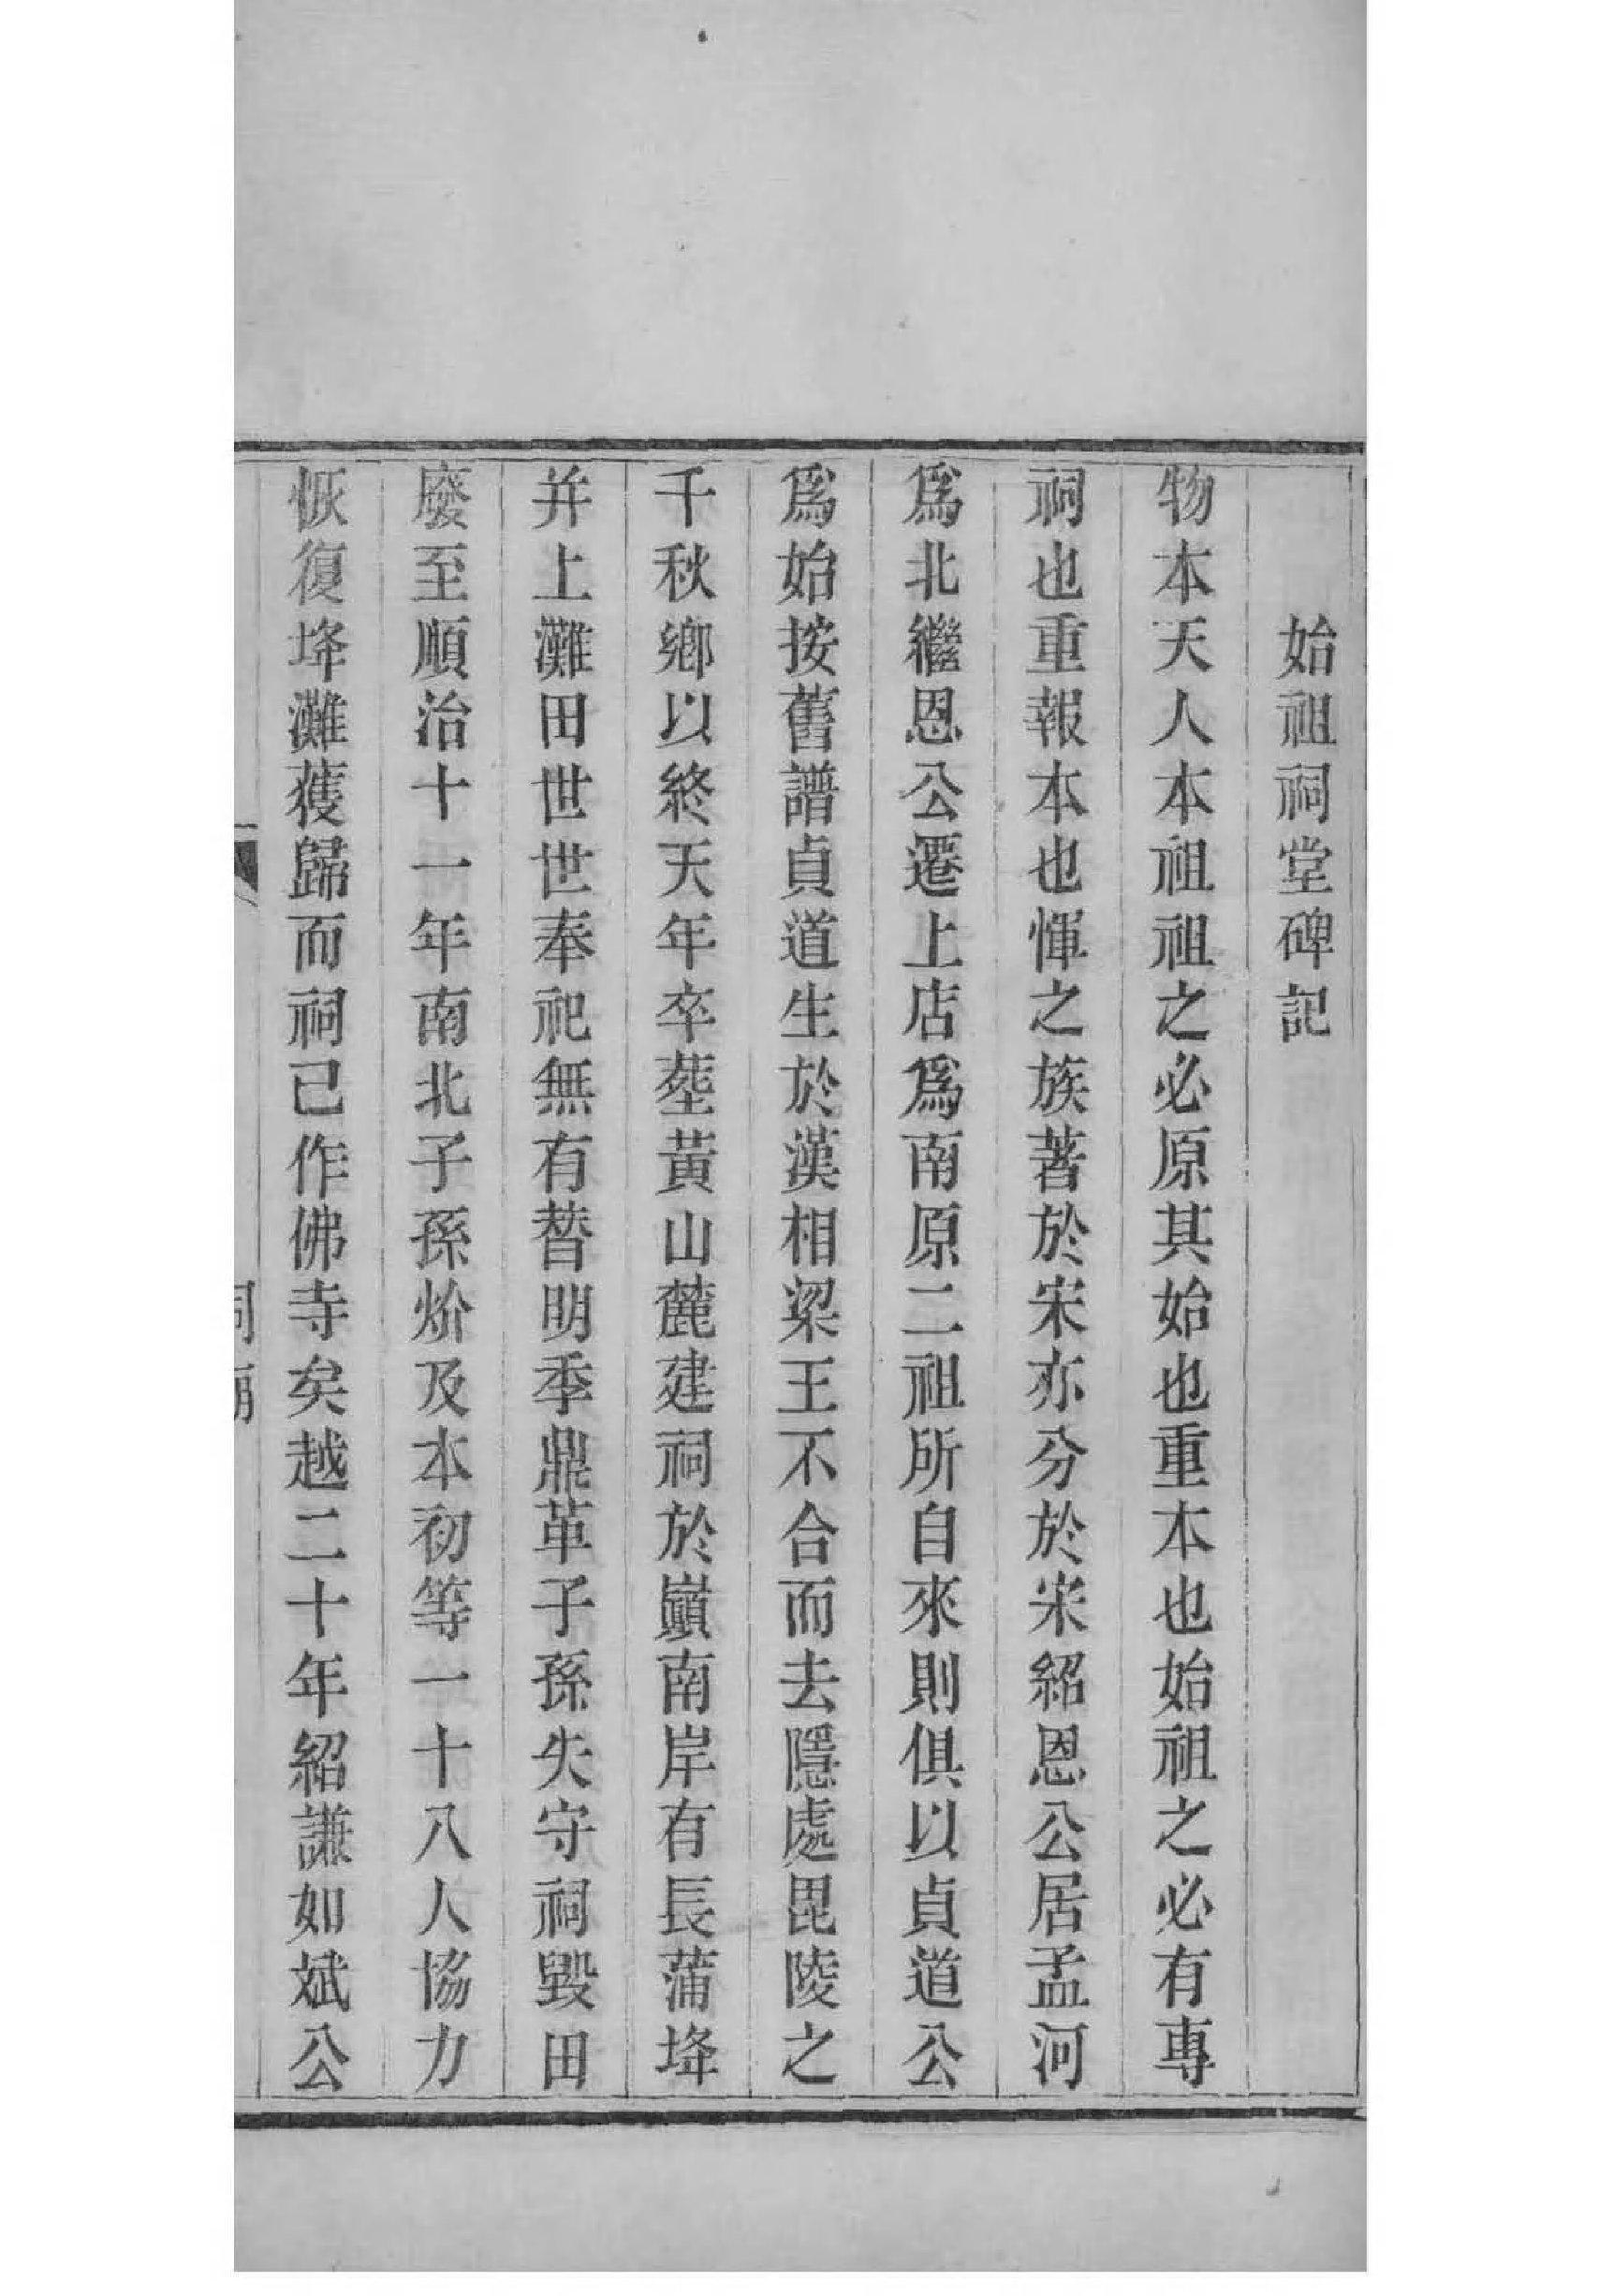 始祖祠堂碑記
物本天人本祖祖之必原其始也重本也始祖之必有專
祠也重報本也惲之族著於宋亦分於宋紹恩公居孟河
爲北繼恩公遷上店爲南原二祖所自來則俱以貞道公
爲始按舊譜貞道生於漢相梁王不合而去隱處毘陵之
千秋鄉以終天年卒塟黃山麓建祠於巔南岸有長蒲垏
并上灘田世世奉祀無有替明季鼎革子孫失守祠毀田
廢至順治十一年南北子孫炌及本初等一十八人協力
恢復垏灘獲歸而祠已作佛寺矣越二十年紹謙如斌公